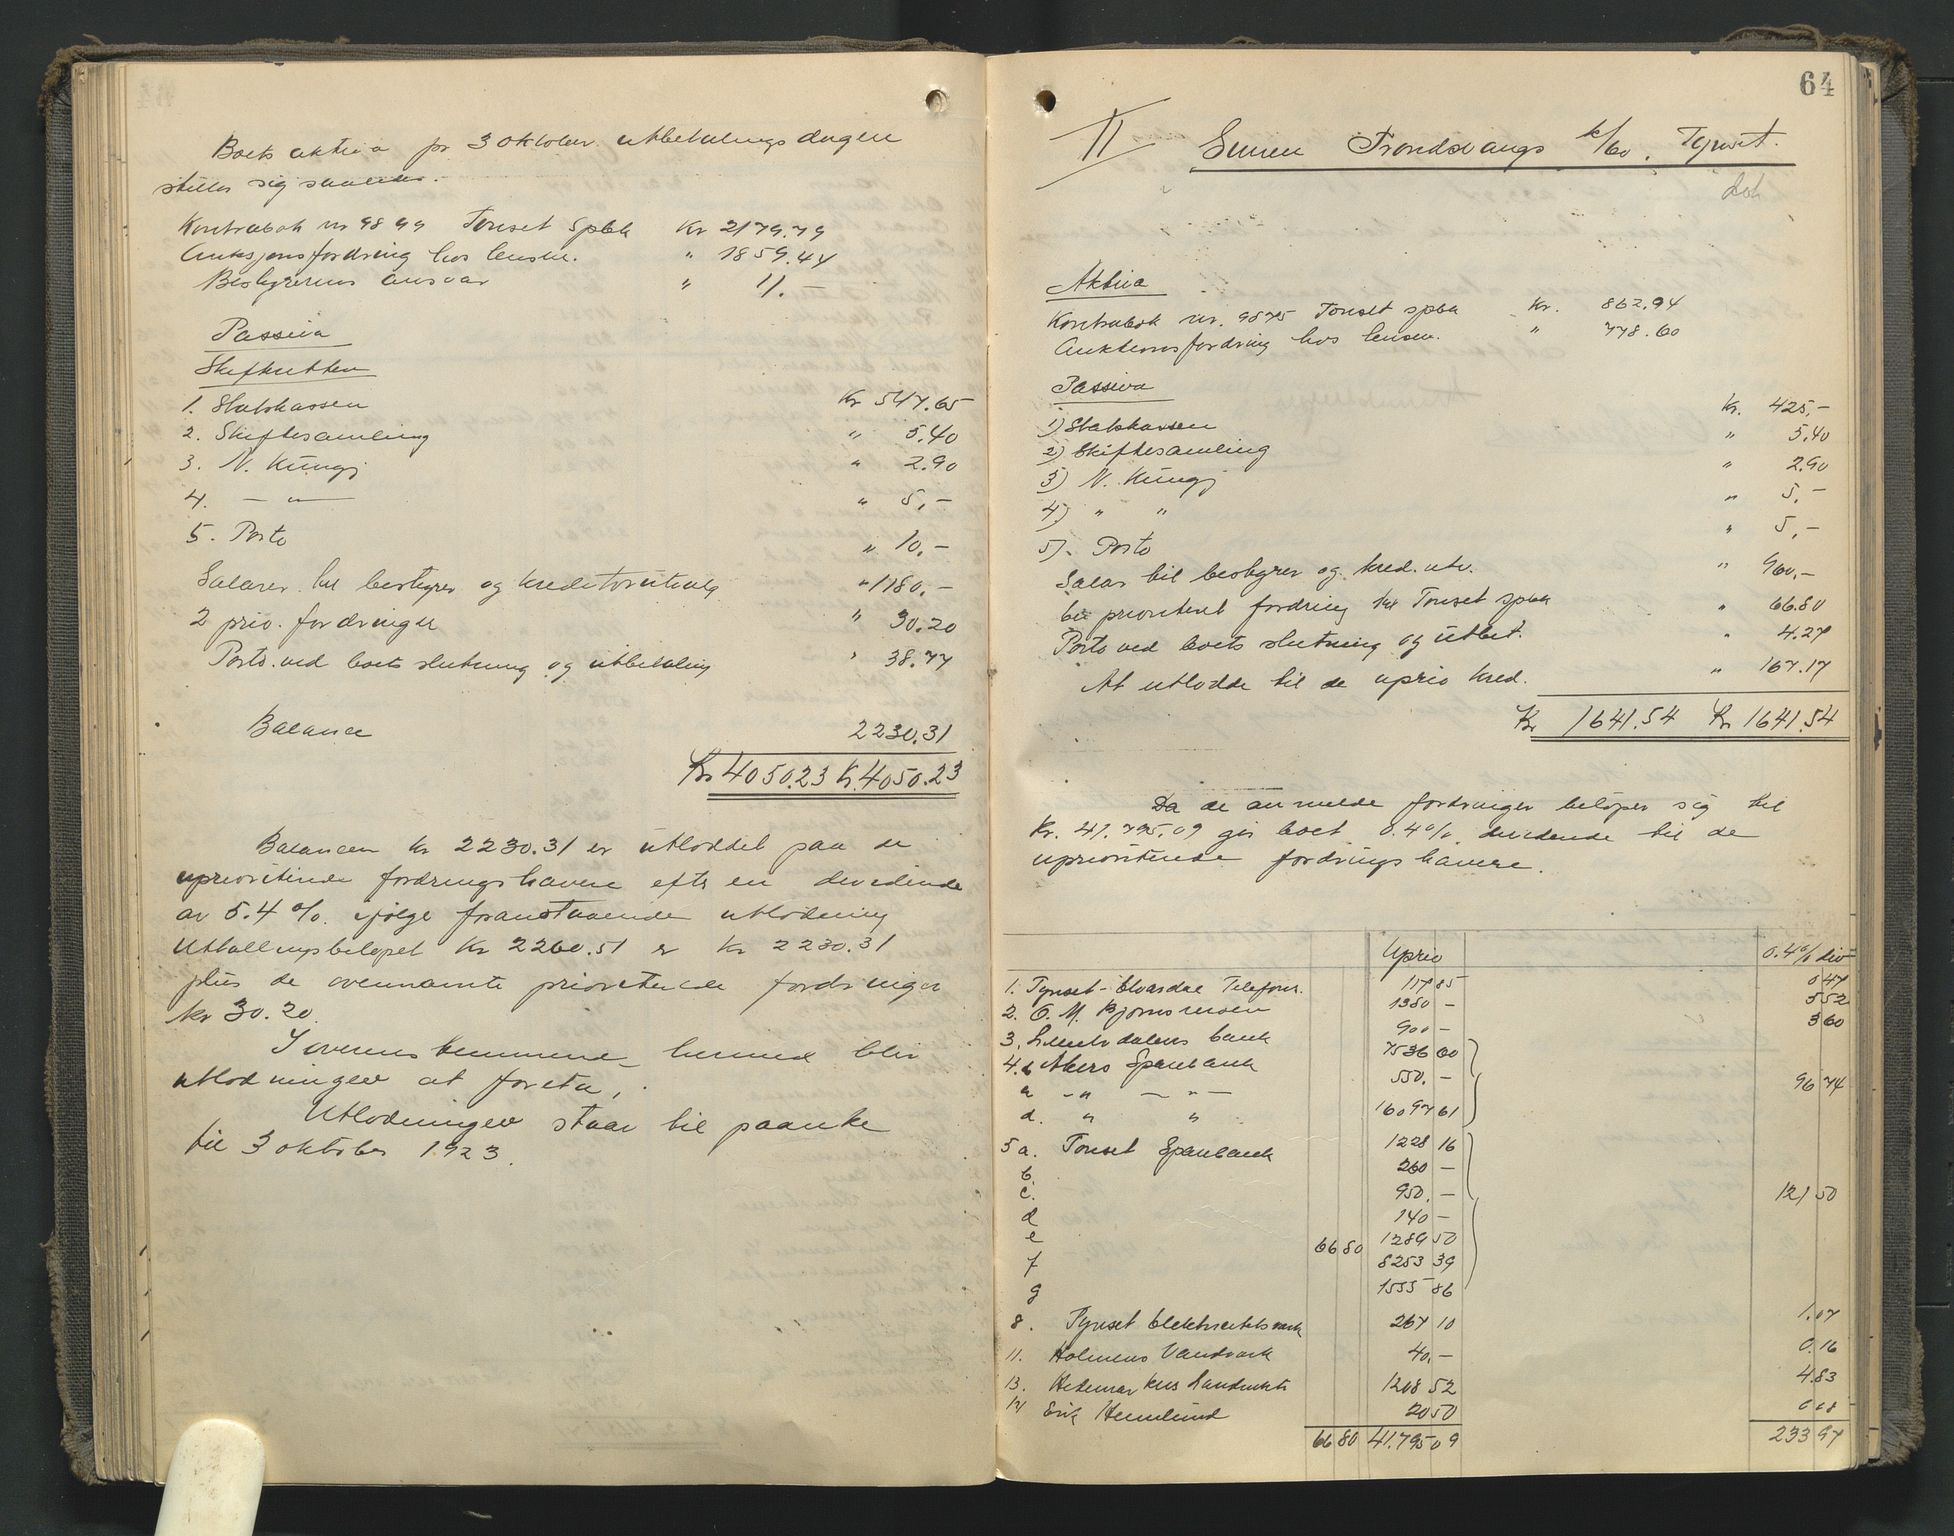 Boets aktiva pr 3 oktober utbetalingsdagen
stiller sig saaledes.
Kontrabok nr 9899 Tønset Spbk Kr 2179.79
Auksjonsfordring hos lensm. " 1859.44
Bestyrerens ansvar " 11.-
Passiva
Skifteretten
1. Statskassen Kr 547.65
2. Skiftesamling " 5.40
3. N. Kungj " 2.90
4. — " — " 5,-
5. Porto " 10,-
Salærer til bestyrer og kreditorutvalg " 1180,-
2 prio. fordringer " 30.20
Porto ved boets slutning og utbetaling " 38.77
Balance 2230.31
Kr 4050.23 Kr. 4050.23
Balancen kr 2230.31 er utloddet paa de
uprioriterte fordringshavere efter en dividende
av 5.4 %. ifølge foranstaaende utlodning
Utbetalingsbeløpet Kr 2260.51 er kr 2230.31
plus de ovennævnte prioriterede fordringer
kr 30.20.
I overensstemmende hermed blir
utlodningen at foreta.
Utlodningen staar til paaanke
til 3 oktober 1923.
64
II Simen Trondsvangs k/bo, Tynset.
Aktiva
Kontrabok nr. 9875 Tønset spbk Kr. 862.94
Auktionsfordring hos lensm. " 778.60
Passiva
1) Statskassen Kr. 425,-
2) Skiftesamling " 5.40
3) N. Kungj " 2.90
4) " " " 5,-
5). Porto " 5,-
Salær til bestyrer og kred. utv. " 960,-
En prioritert fordring til Tønset spbk " 66.80
Porto ved boets slutning og utbet. " 4.27
At utlodde til de uprio kred. " 167.17
Kr 1641.54 Kr 1641.54
Da de anmeldte fordringer beløper sig til
Kr. 41.795.09 gir boet 0.4% dividende til de
uprioriterede fordringshavere.
Uprio 0.4% div
1. Tynset-Elvardal Telefonf. 117 85 0 47
2. O. M. Bjørnsmoen 1380 - 5 52
3. Lilleelvdalens bank 900 - 3 60
4. Akers Sparebank 7536 00
" - " — " — 550. -
d. " " 16097 61 96 74
5 a. Tønset Sparebank 1228 16
b. 260 -
c. 950. - 121 50
d 140 -
e 66 80 1289 50
f 8253 39
g 1555 86
8. Tynset Elektricitetsverk 267 10 1.07
11. Holmens Vandverk 40,- 0.16
13. Hedemarkens Landmkts 1208 52 4.83
14 Erik Hemlund 20 50 0 08
66 80 41.795 09 233 97